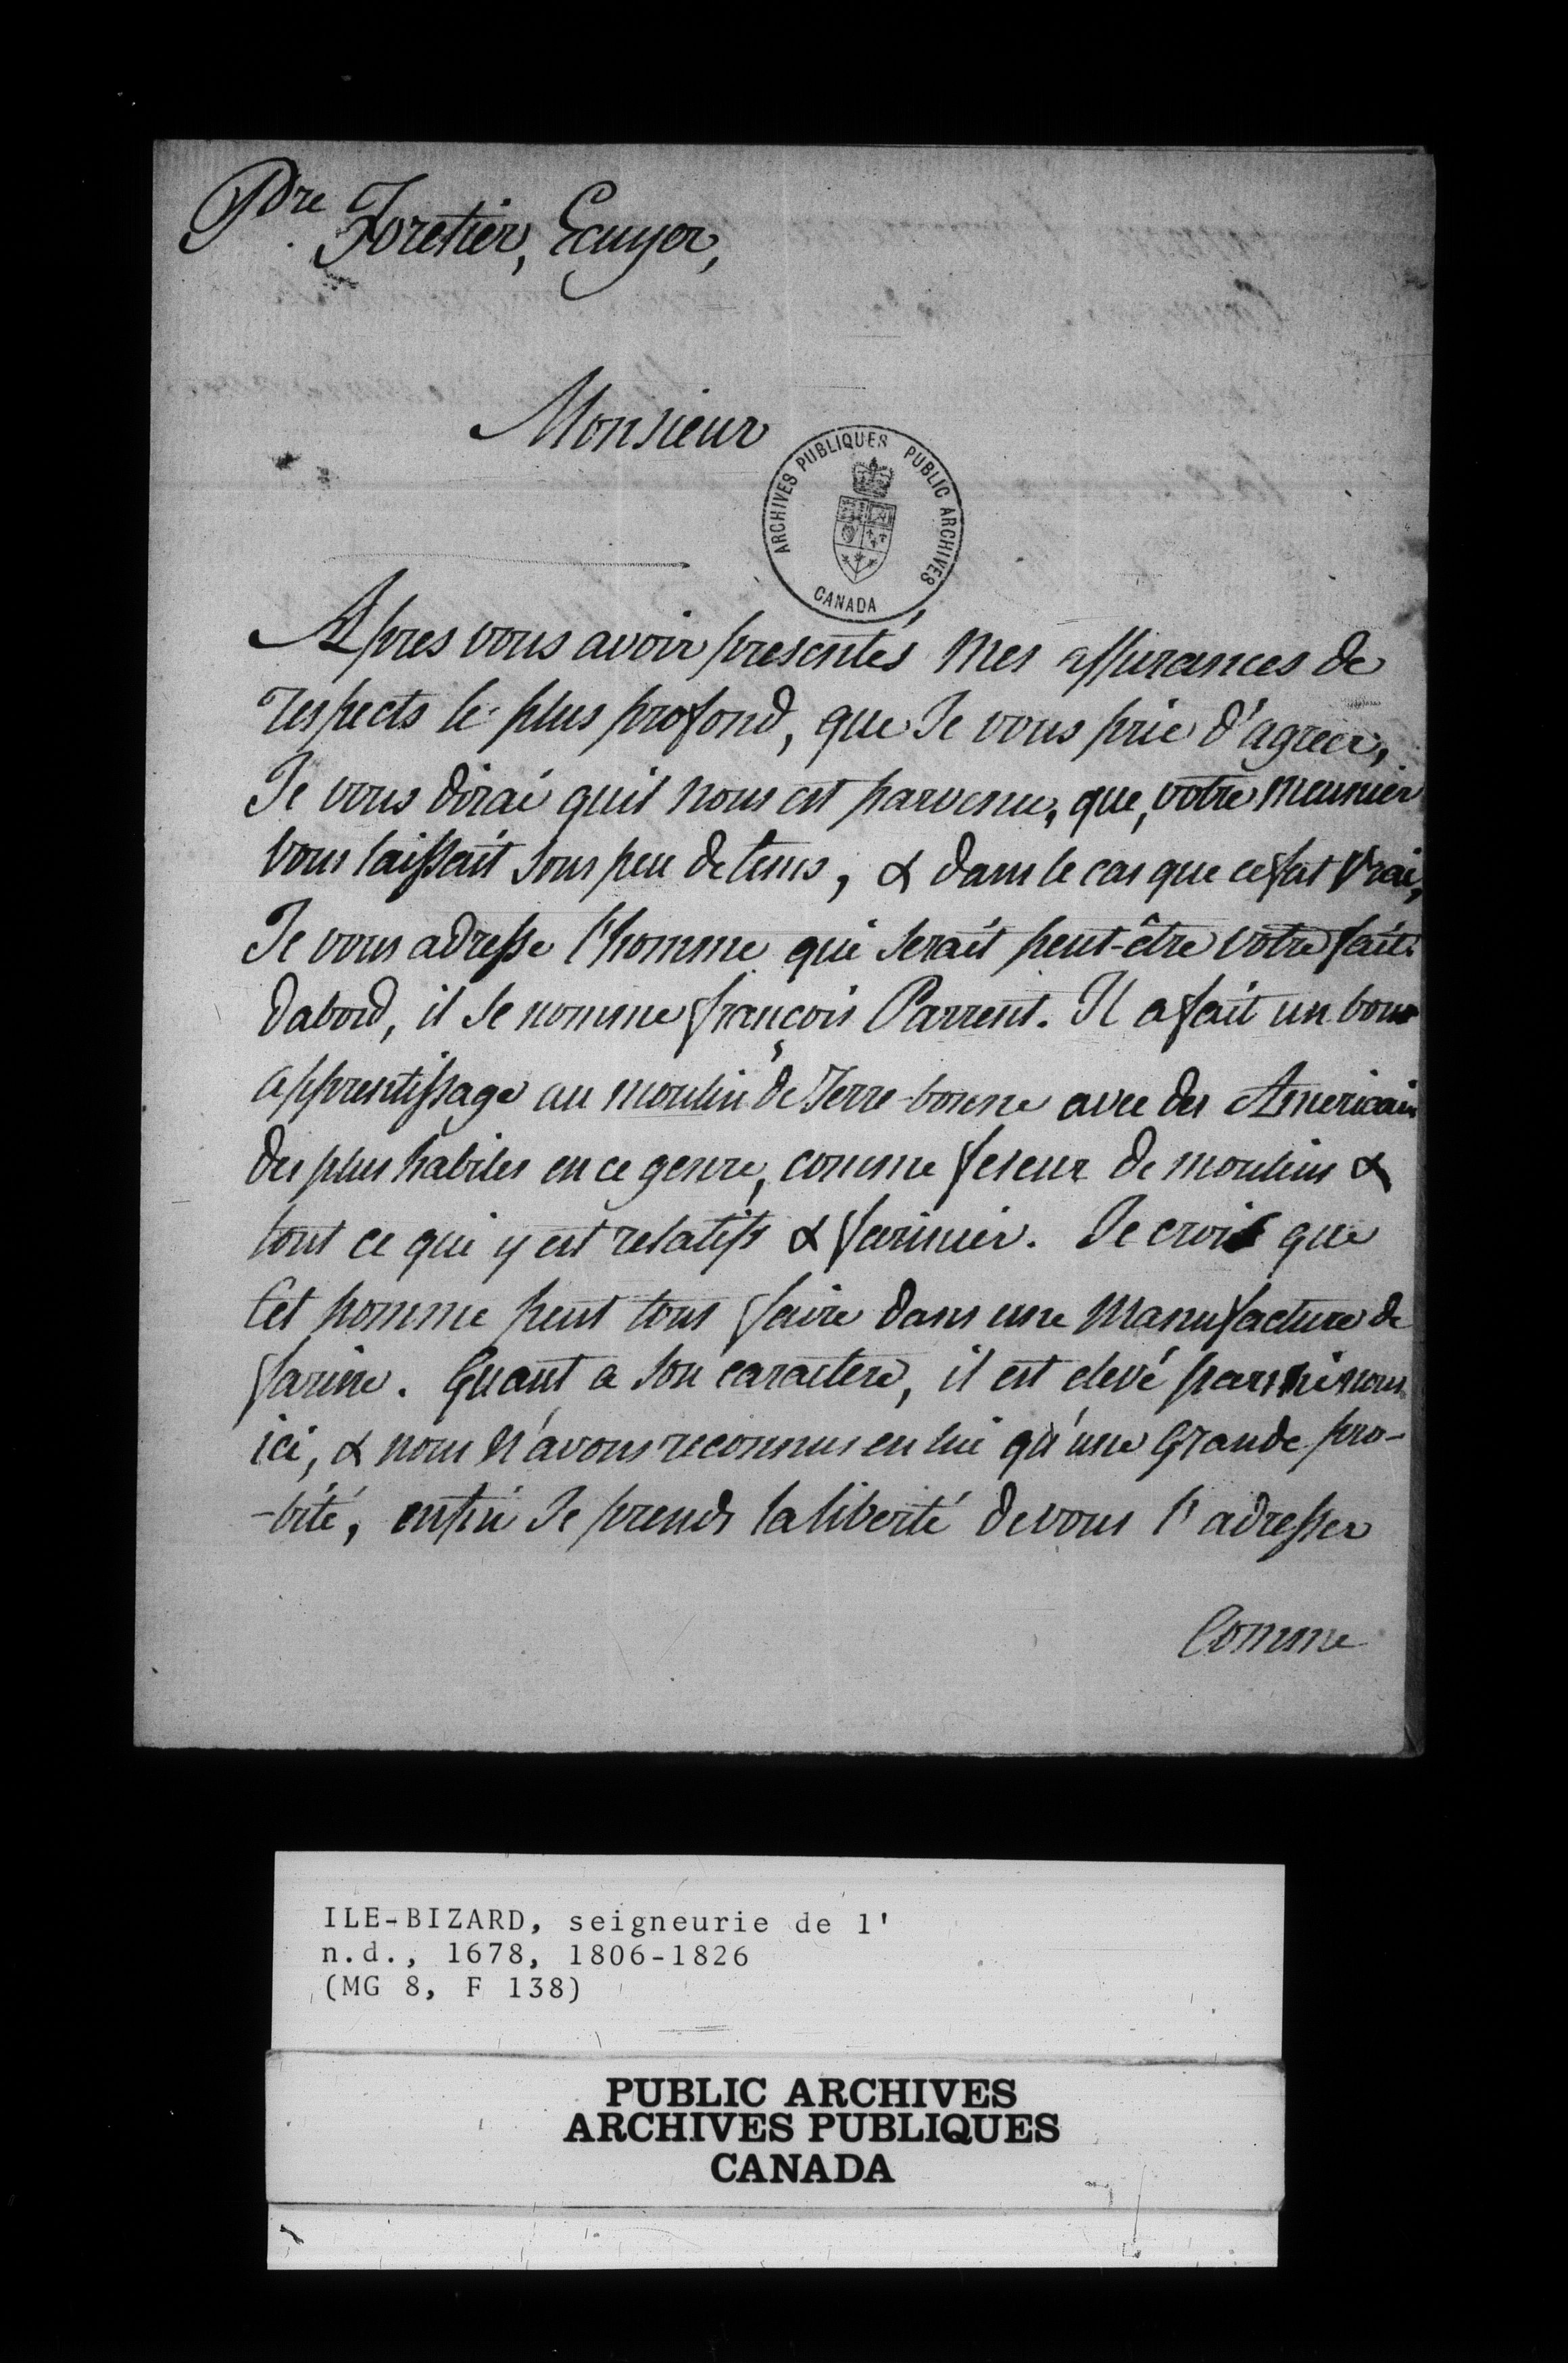 Pdre Foretier, Ecuyer,
Monsieur
ARCHIVES PUBLIQUES PUBLIC ARCHIVES
CANADA
Apres vous avoir presentés mes assurances de
respects le plus profond, que Je vous prie d'agreer,
Je vous dirai quil nous est parvenu, que, votre meunier
vous laissait sous peu de tems, & dans le cas que ce fut vrai,
Je vous adresse l'homme qui serait peut-être votre fait.
Dabord, il se nomme françois Parrent. Il a fait un bon
apprentissage au moulin de Terre-bonne avec des Americain
des plus habiles en ce genre, comme feseur de moulins &
tout ce qui y est relatifs & farinier. Je crois que
Cet homme peut tous faire dans une Manufacture de
farine. Quant a son caractere, il est elevé parmi nous
ici, & nous n'avons reconnus en lui qu'une Grande pro-
-bité, enfin Je prends la liberté de vous l'adresser
Comme
ILE-BIZARD, seigneurie de l'
n.d., 1678, 1806-1826
(MG 8, F 138)
PUBLIC ARCHIVES
ARCHIVES PUBLIQUES
CANADA